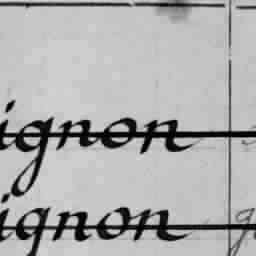 ignon
ignon g